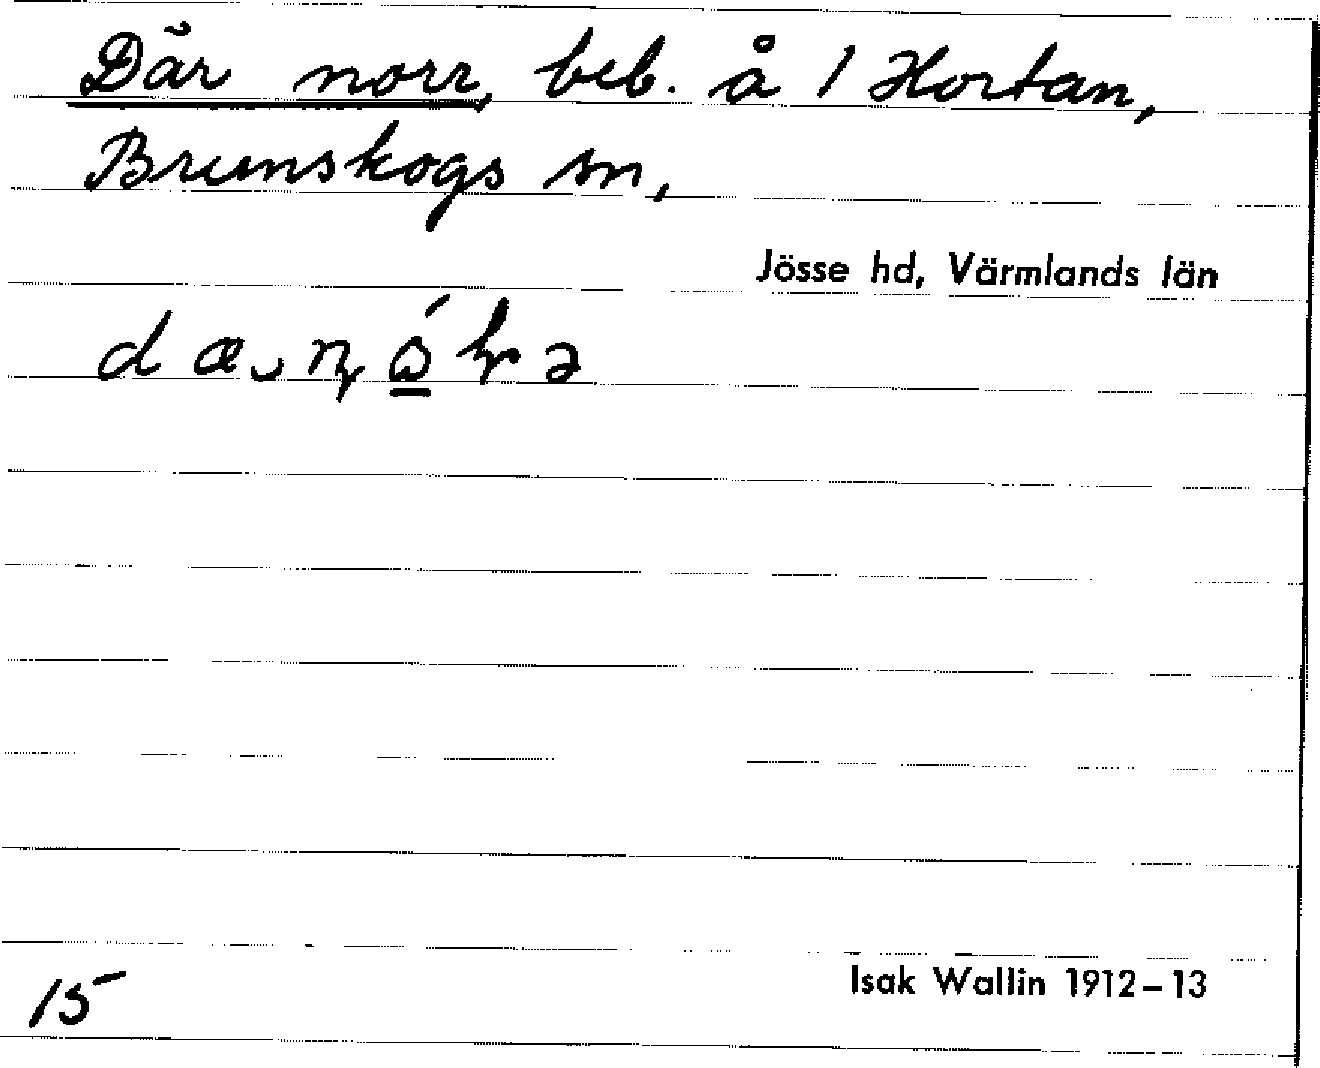 Där norr, beb. å 1 Hortan,
Brunskogs sn,
Jösse hd, Värmlands län
15
Isak Wallin 1912–13